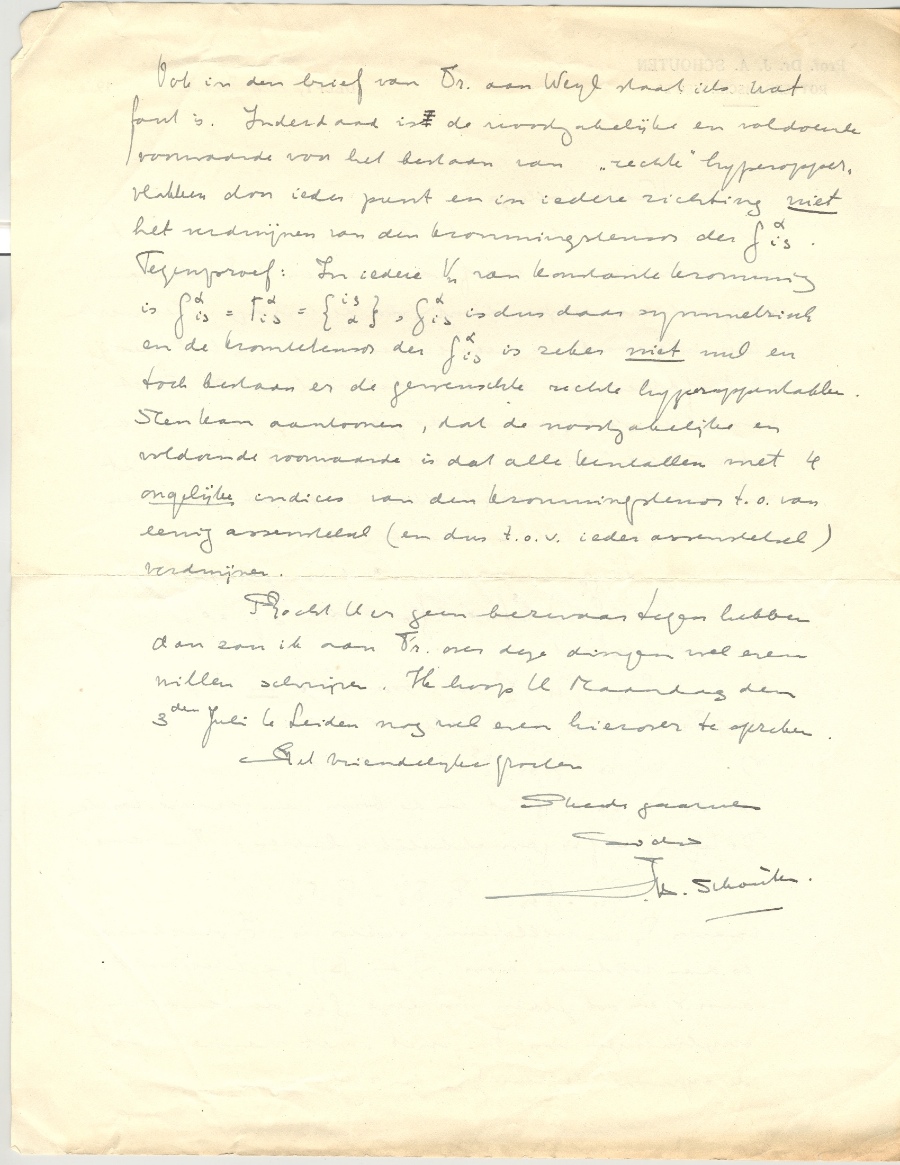 Ook in den brief van Fr. aan Weyl staat iets wat
fout is. Inderdaad is de noodzakelijke en voldoende
voorwaarde voor het bestaan van „rechte" hyperopper-
vlakken door ieder punt en in iedere richting niet
het verdwijnen van den krommingstensor der ʃ^α_is .
Tegenproef: In iedere Vn van konstante kromming
is ʃ^α_is = Γ^α_is = {is α}, ʃ^α_is is dus daar symmetrisch
en de kromtetensor der ʃ^α_is is zeker niet nul en
toch bestaan er de gewenschte rechte hyperoppervlakken.
Men kan aantoonen, dat de noodzakelijke en
voldoende voorwaarde is dat alle kentallen met 4
ongelijke indices van den krommingstensor t.o. van
eenig assenstelsel (en dus t.o.v. ieder assenstelsel)
verdwijnen.
Mocht U er geen bezwaar tegen hebben
dan zou ik aan Fr. over deze dingen wel even
willen schrijven. Ik hoop U Maandag den
3den Juli te Leiden nog wel even hierover te spreken.
Met vriendelijke groeten
Steeds gaarne
Schouten.
Prof. Dr. J. A. SCHOUTEN